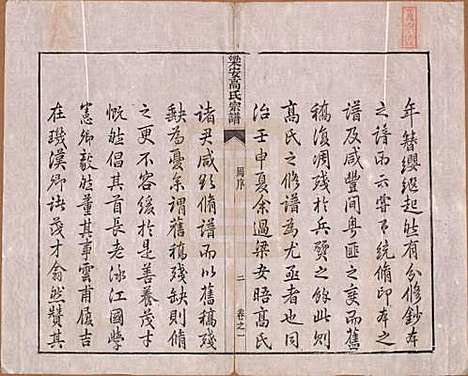 年簪纓繼起雖有分修鈔本
之譜而六宗下統修印本之
譜及咸豐間粤匪之變而舊
稿復凋殘於兵燹之餘此則
高氏之修譜為尤亟者也同
治壬申夏余過梁安晤高氏
梁安高氏宗譜
序
二
卷之一
諸君咸欲脩譜而以舊稿殘
缺為憂余謂舊稿殘缺則脩
之更不容緩於是善養茂才
慨然倡其首長老泳江國學
憲卿毅然董其事雲甫履吉
在璣漢卿誠茂才翕然贊其